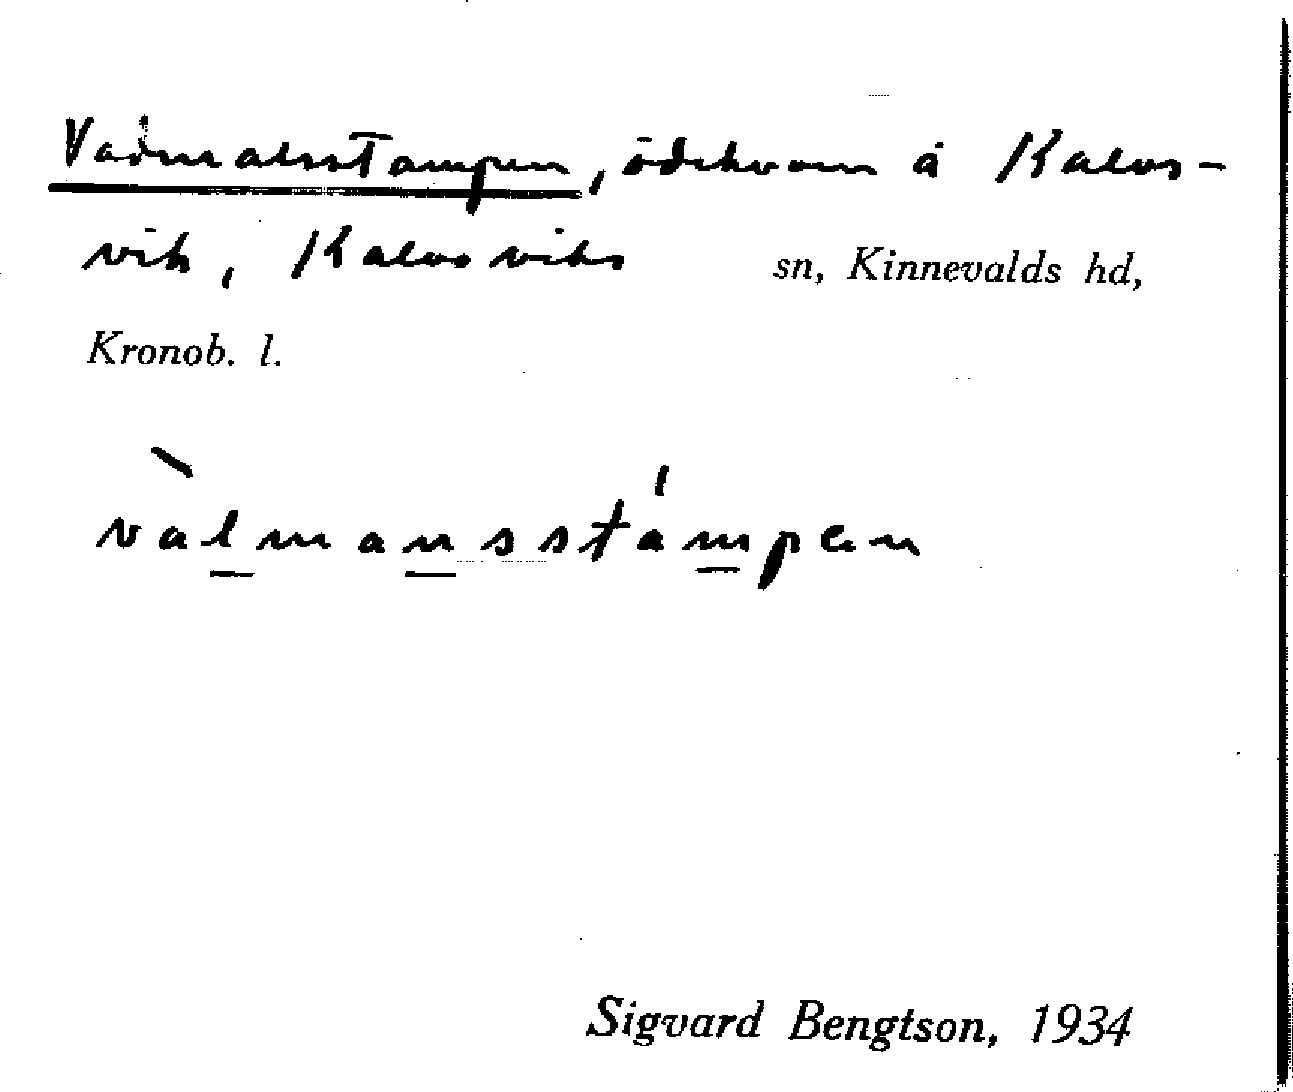 Vadmalsstampen, ödekvarn å Kalvs-
vik, Kalvsviks sn, Kinnevalds hd,
Kronob. l.
vàlmansstámpen
Sigvard Bengtson, 1934